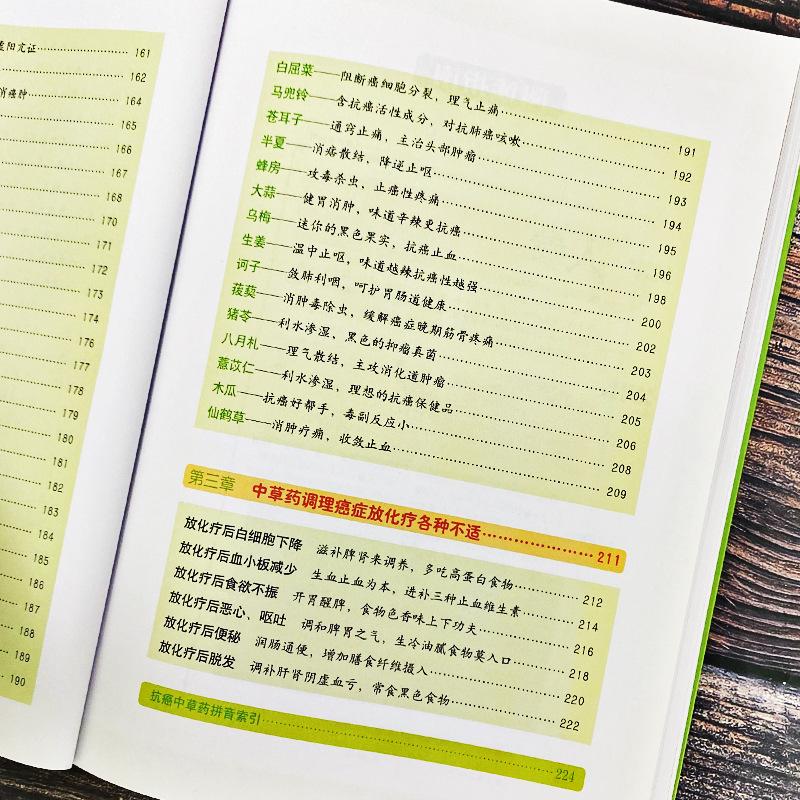 虚阳亢证 161
162
消癌肿 164
165
166
167
168
170
171
172
173
174
176
177
178
179
180
181
182
183
184
185
186
187
188
189
190
白屈菜——阻断癌细胞分裂，理气止痛 191
马兜铃——含抗癌活性成分，对抗肺癌咳嗽 192
苍耳子——通窍止痛，主治头部肿瘤 193
半夏——消痞散结，降逆止呕 194
蜂房——攻毒杀虫，止癌性疼痛 195
大蒜——健胃消肿，味道辛辣更抗癌 196
乌梅——迷你的黑色果实，抗癌止血 198
生姜——温中止呕，味道越辣抗癌性越强 200
诃子——敛肺利咽，呵护胃肠道健康 202
菝葜——消肿毒除虫，缓解癌症晚期筋骨疼痛 203
猪苓——利水渗湿，黑色的抑瘤真菌 204
八月札——理气散结，主攻消化道肿瘤 205
薏苡仁——利水渗湿，理想的抗癌保健品 206
木瓜——抗癌好帮手，毒副反应小 208
仙鹤草——消肿疗痛，收敛止血 209
第三章 中草药调理癌症放化疗各种不适 211
放化疗后白细胞下降 滋补脾肾来调养，多吃高蛋白食物 212
放化疗后血小板减少 生血止血为本，进补三种止血维生素 214
放化疗后食欲不振 开胃醒脾，食物色香味上下功夫 216
放化疗后恶心、呕吐 调和脾胃之气，生冷油腻食物莫入口 218
放化疗后便秘 润肠通便，增加膳食纤维摄入 220
放化疗后脱发 调补肝肾阴虚血亏，常食黑色食物 222
抗癌中草药拼音索引 224